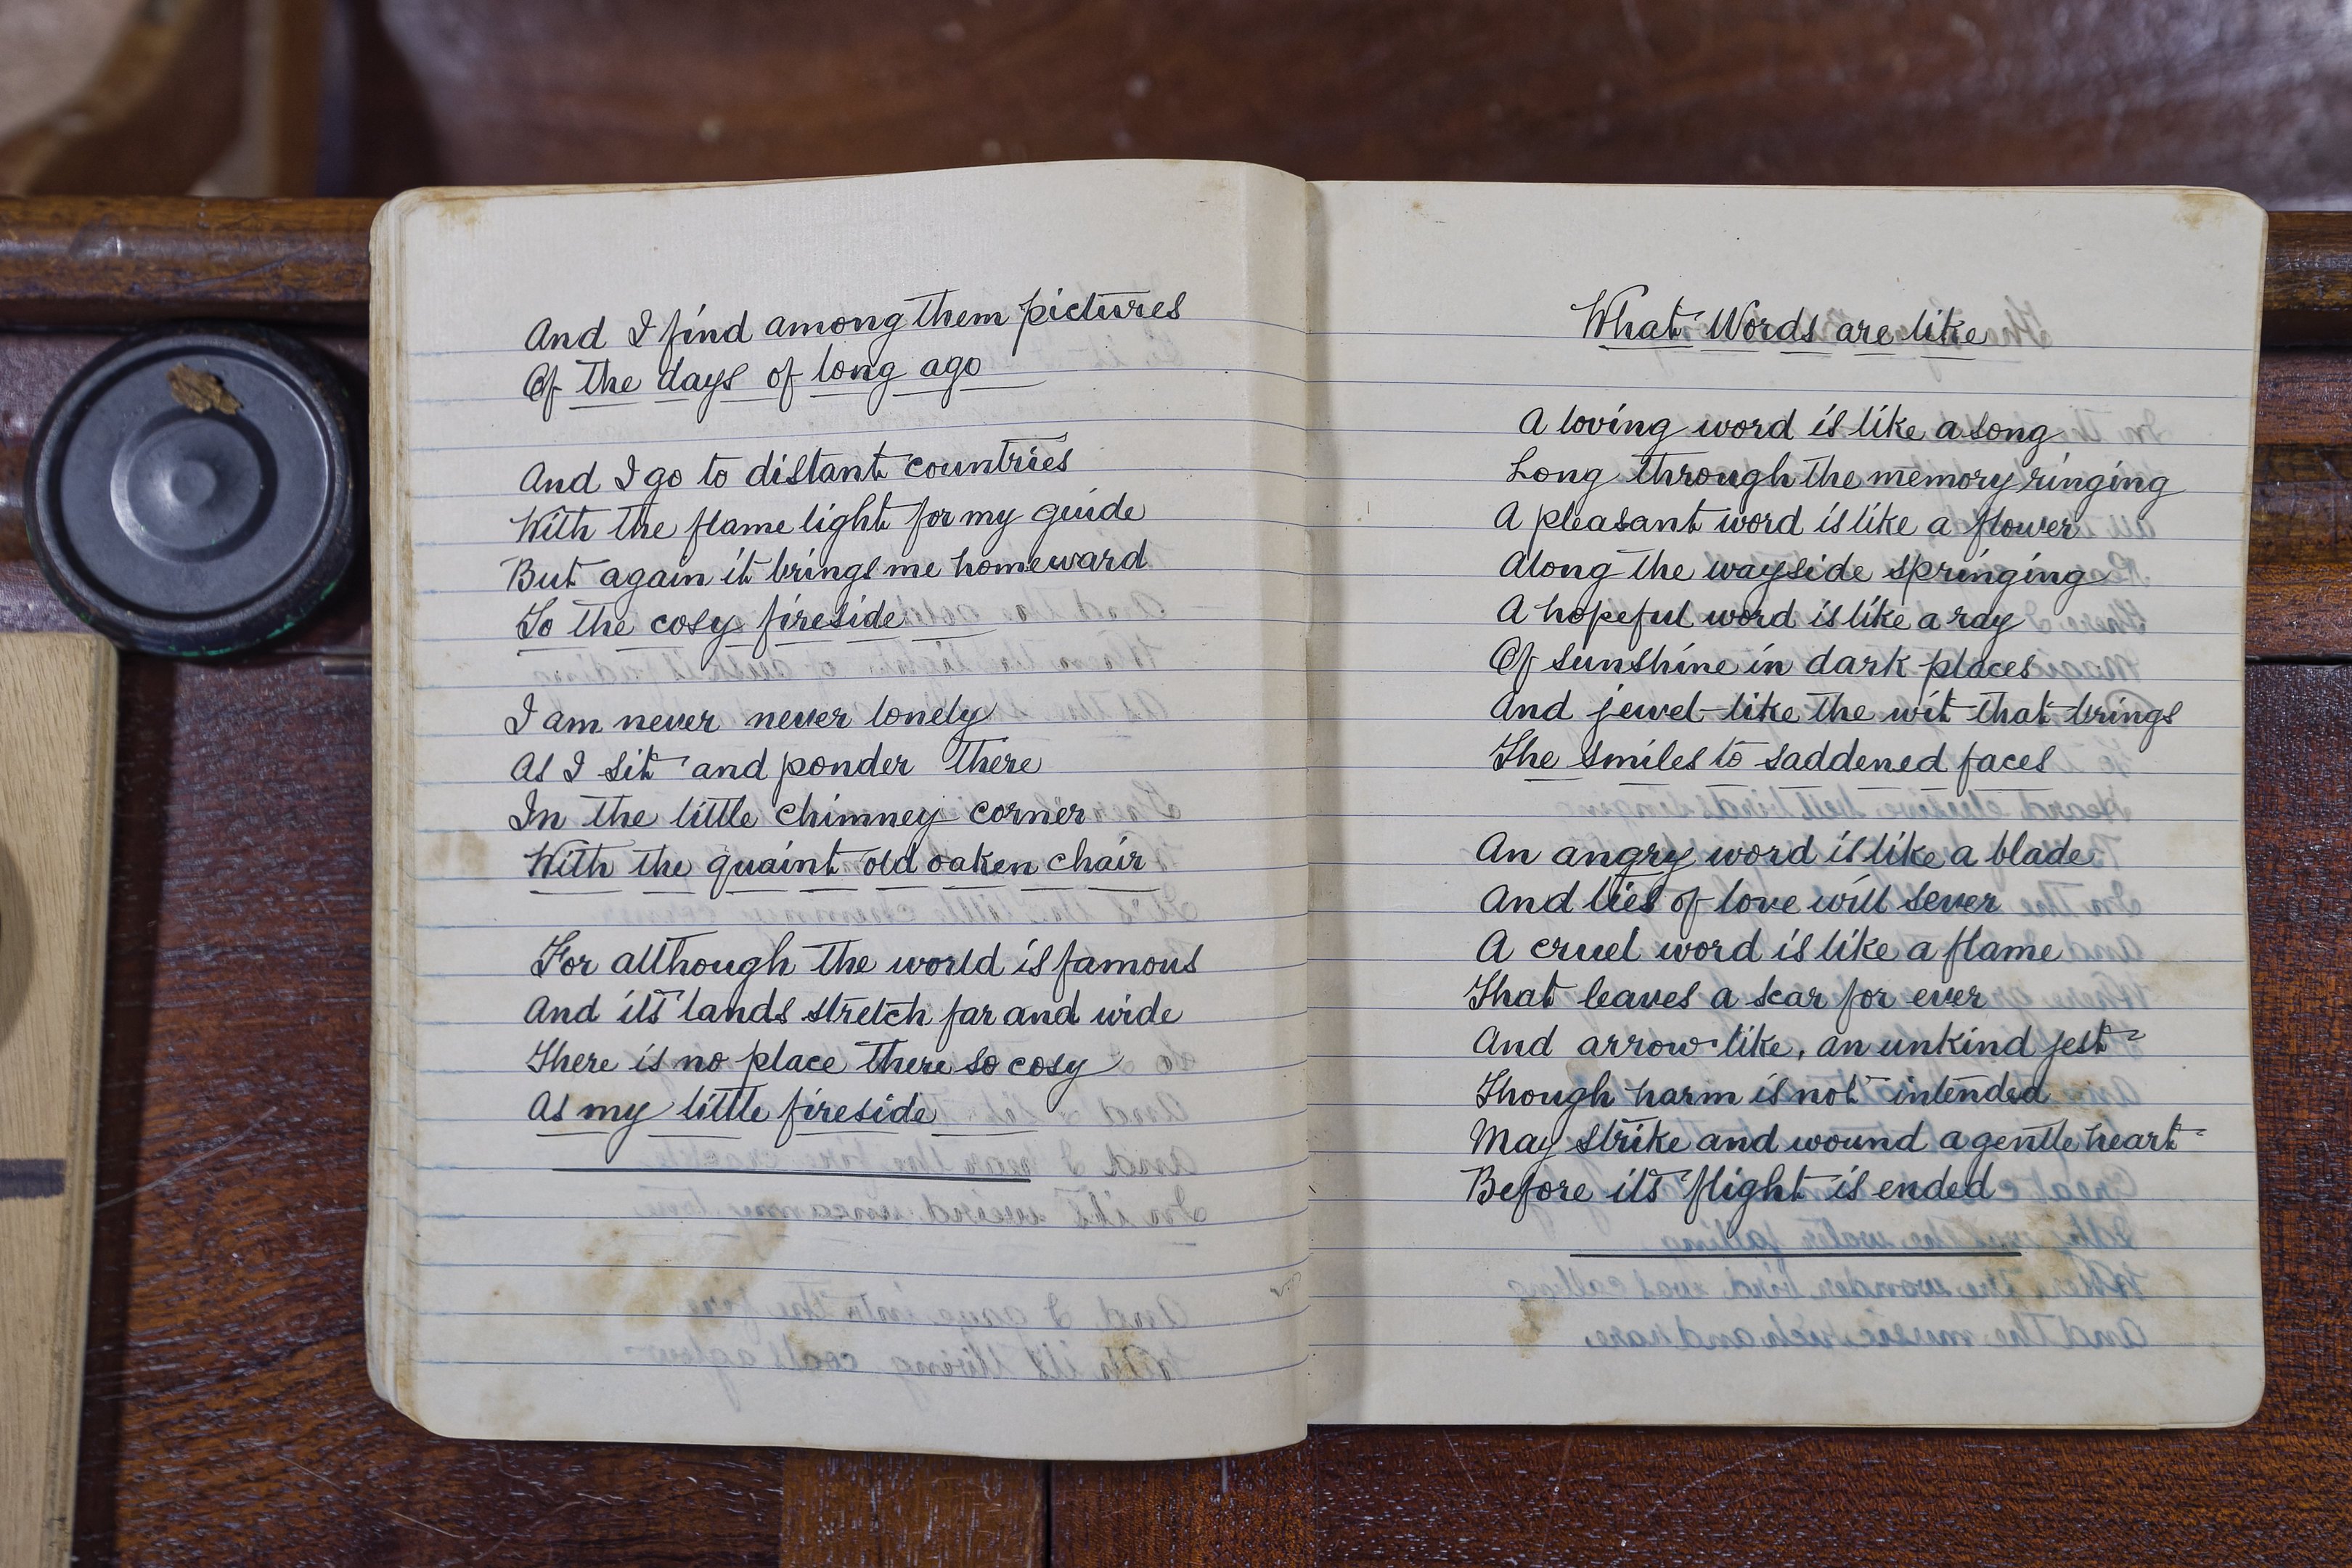 And I find among them pictures
Of the days of long ago
And I go to distant countries
With the flame light for my guide
But again it brings me homeward
To the cosy fireside
I am never never lonely
As I sit and ponder there
In the little chimney corner
With the quaint old oaken chair
For although the world is famous
And its lands stretch far and wide
There is no place there so cosy
As my little fireside
What Words are like
A loving word is like a song
Long through the memory ringing
A pleasant word is like a flower
Along the wayside springing
A hopeful word is like a ray
Of sunshine in dark places
And jewel-like the wit that brings
The smiles to saddened faces
An angry word is like a blade
And lies of love will sever
A cruel word is like a flame
That leaves a scar for ever
And arrow-like, an unkind jest
Though harm is not intended
May strike and wound a gentle heart
Before its flight is ended